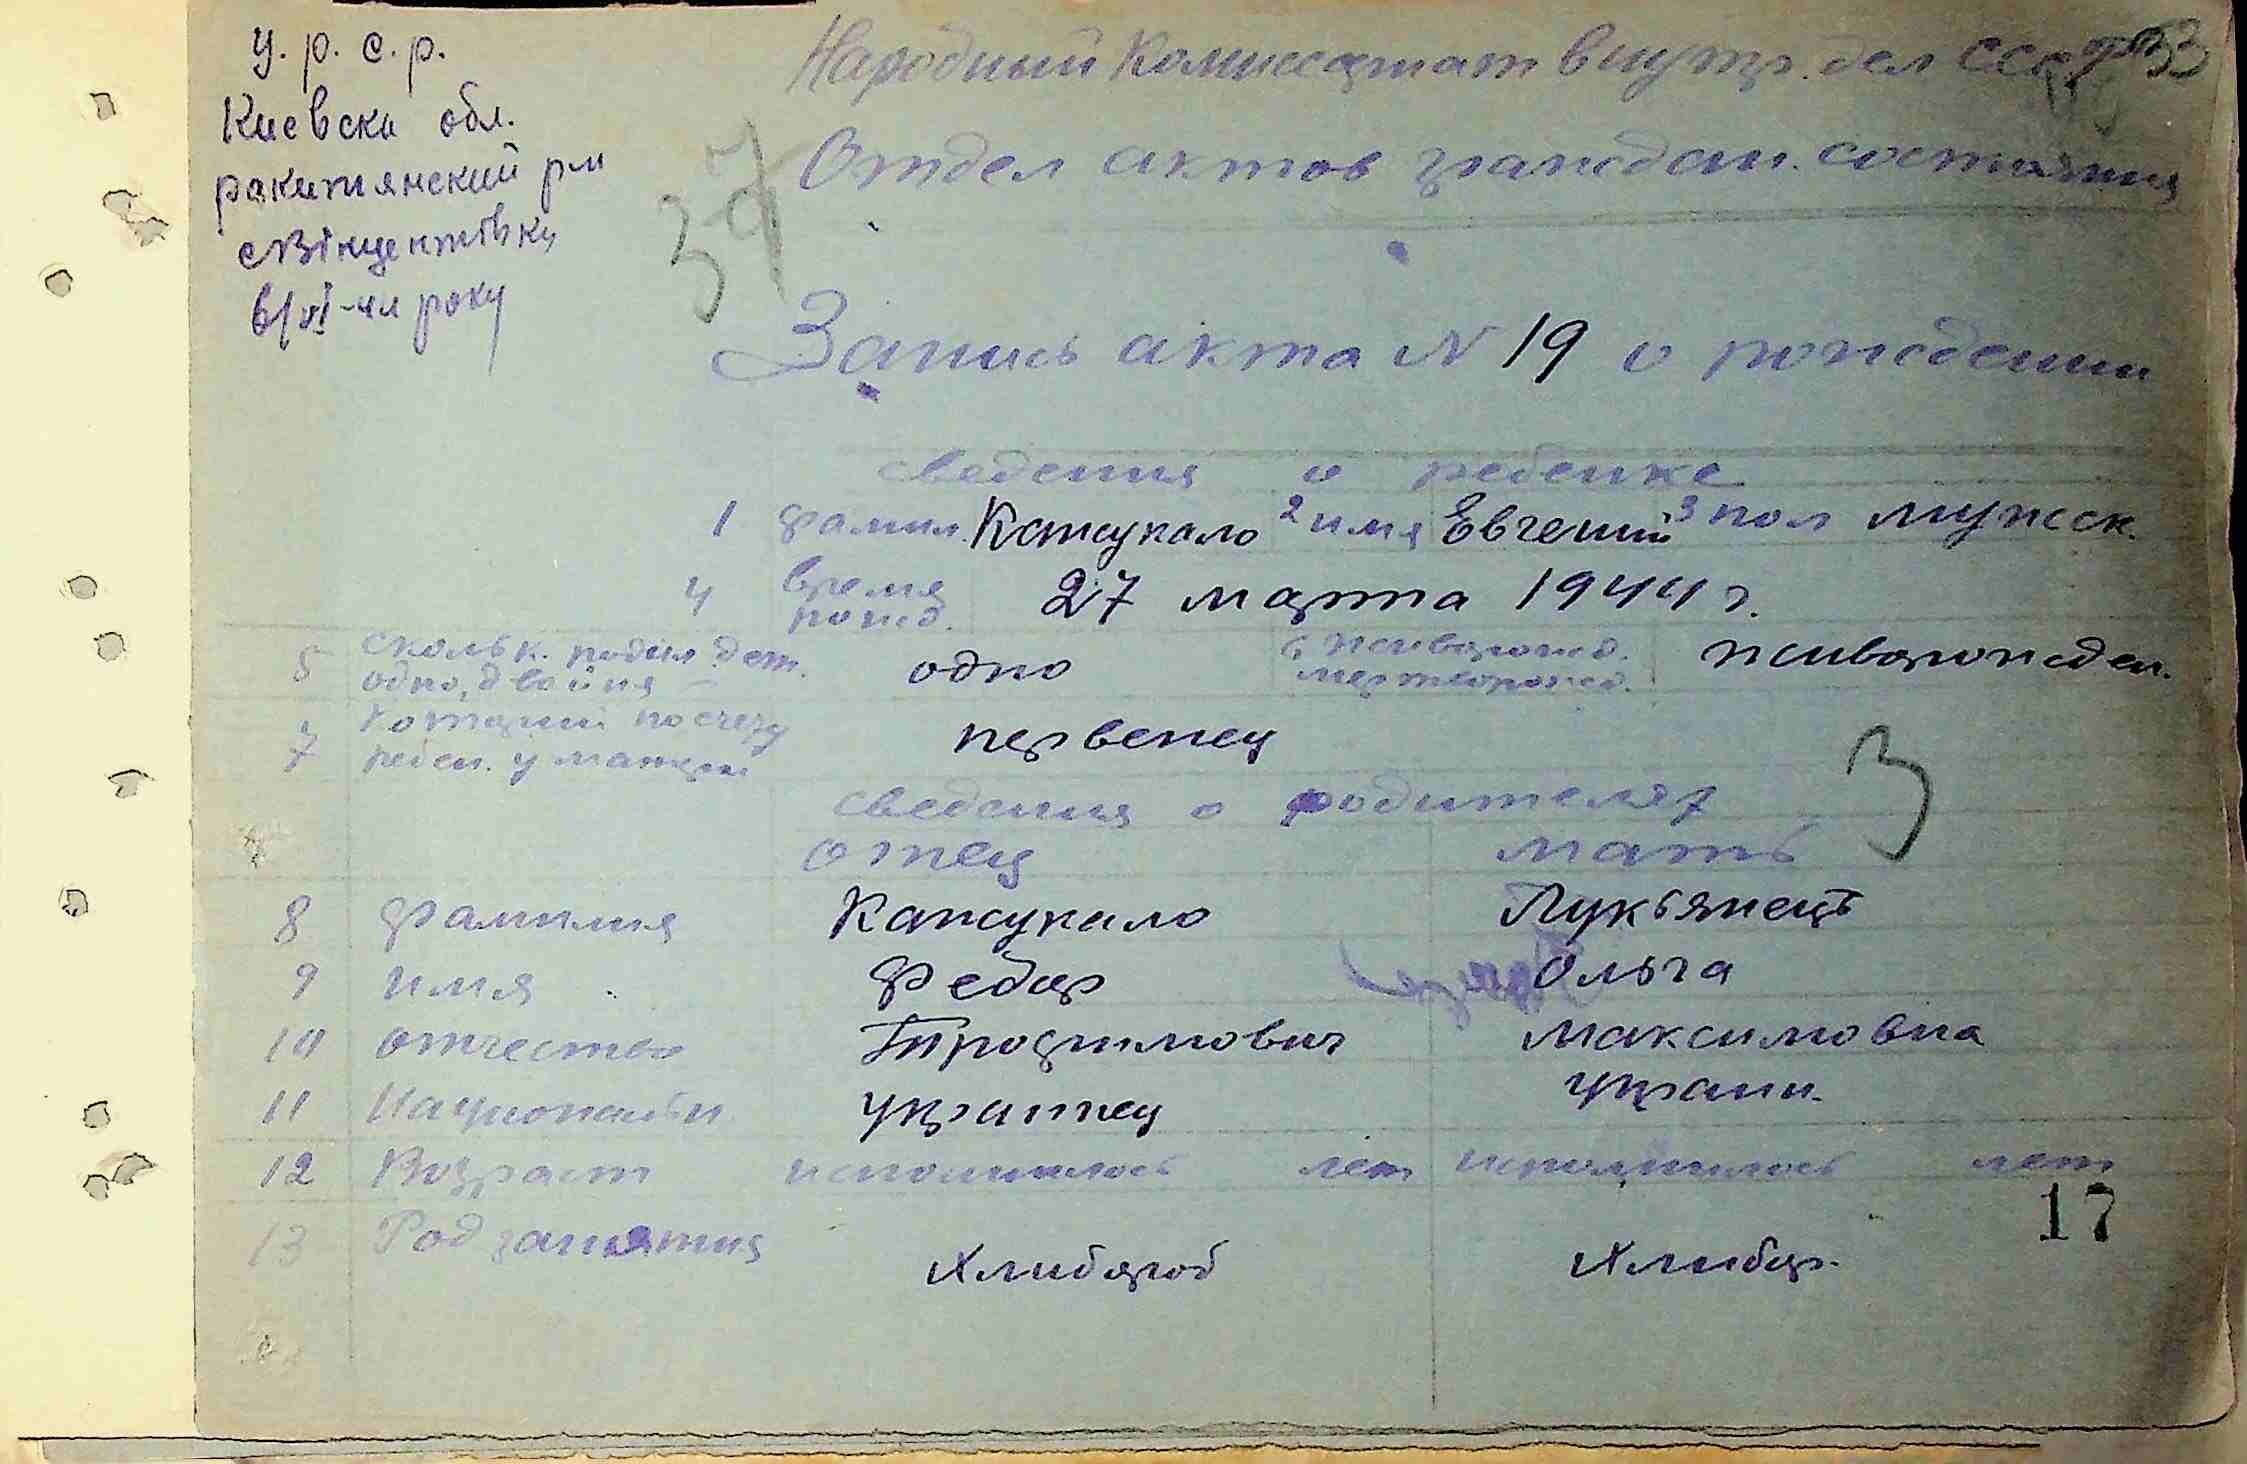 У. р. с. р.
Киевска обл.
ракитянский рн
с Вінцентівка
в/VI-44 року
Народный Комиссариат Внутр. дел СССР
33
Отдел актов граждан. состояния
37
Запись акта N 19 о рождении
сведения о ребенке
1 фамил. Кажукало 2 имя Евгений 3 пол мужск.
4 время рожд. 27 марта 1944 г.
5 скольк. родил. дет. одно, двойня одно 6 живорожд. мертворожд. живорожден.
7 который по счету ребен. у матери первенец
3
сведения о родителях
отец мать
8 фамилия Кажукало Лукьянець
9 имя Федор Ольга
10 отчество Трофимович Максимовна
11 Национальн. украинец украин.
12 Возраст исполнилось лет исполнилось лет
17
13 Род занятия Хлибороб Хлибор.